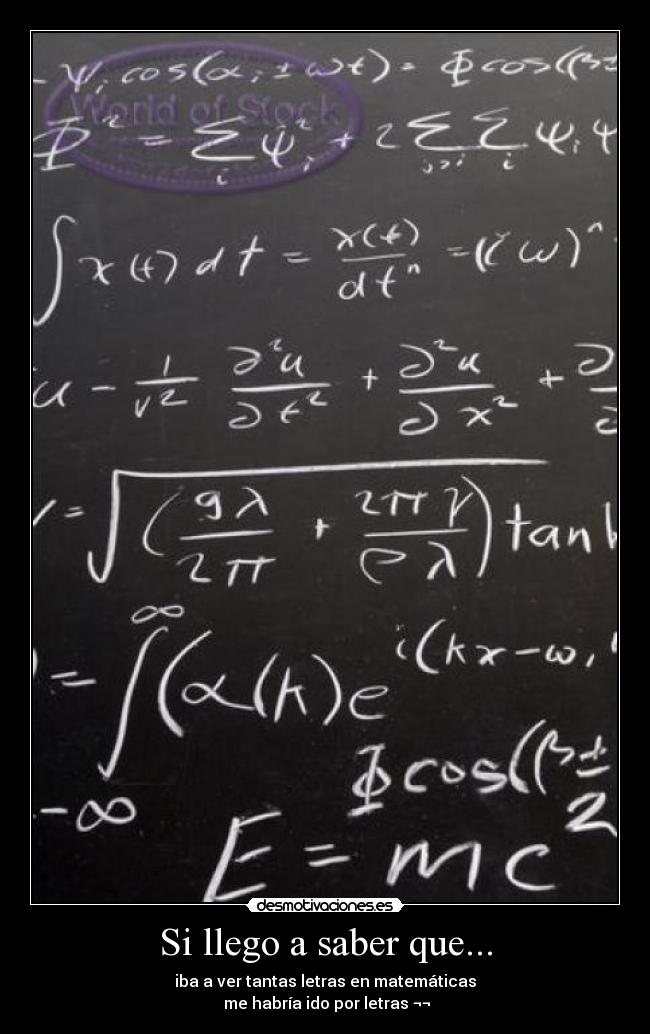 - ψᵢ cos(αᵢ ± ωt) = Φ cos((β±
World of Stock
Φ² = Σᵢ ψᵢ² + 2 Σⱼ>ᵢ Σᵢ ψᵢ ψ
∫ x(t) dt = x(t)/dtⁿ = (iω)ⁿ
u - 1/v² ∂²u/∂t² + ∂²u/∂x² + ∂
= √(gλ/2π + 2πγ/ρλ) tanh
) = ∫ -∞ ∞ (α(k)e i(kx-ω,
Φcos((β±
2
E = mc
desmotivaciones.es
Si llego a saber que...
iba a ver tantas letras en matemáticas
me habría ido por letras ¬¬